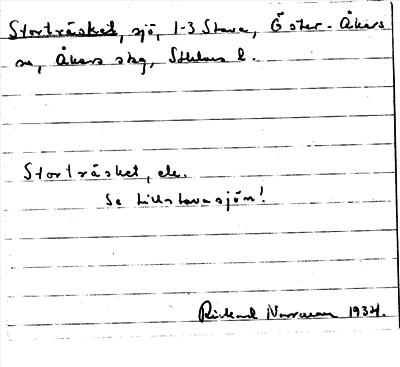 Storträsket, sjö, 1-3 Stava, Öster-Åkers
sn, Åkers skg, Sthlms l.
Storträsket, ele.
Se Lillstavasjön!
Rickard Norrman 1934.